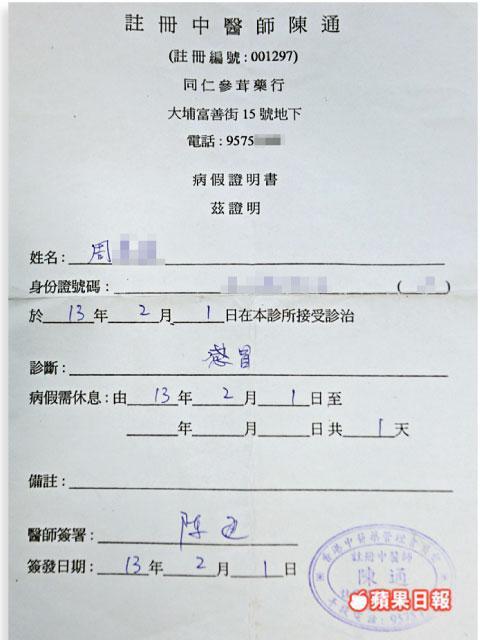 註冊中醫師陳通
(註冊編號:001297)
同仁參茸藥行
大埔富善街15號地下
電話:9575
病假證明書
茲證明
姓名:周
身份證號碼: ( )
於13年2月1日在本診所接受診治
診斷:感冒
病假需休息:由13年2月1日至
年 月 日共1天
備註:
醫師簽署:陳通
簽發日期:13年2月1日
註冊中醫師
陳通
蘋果日報